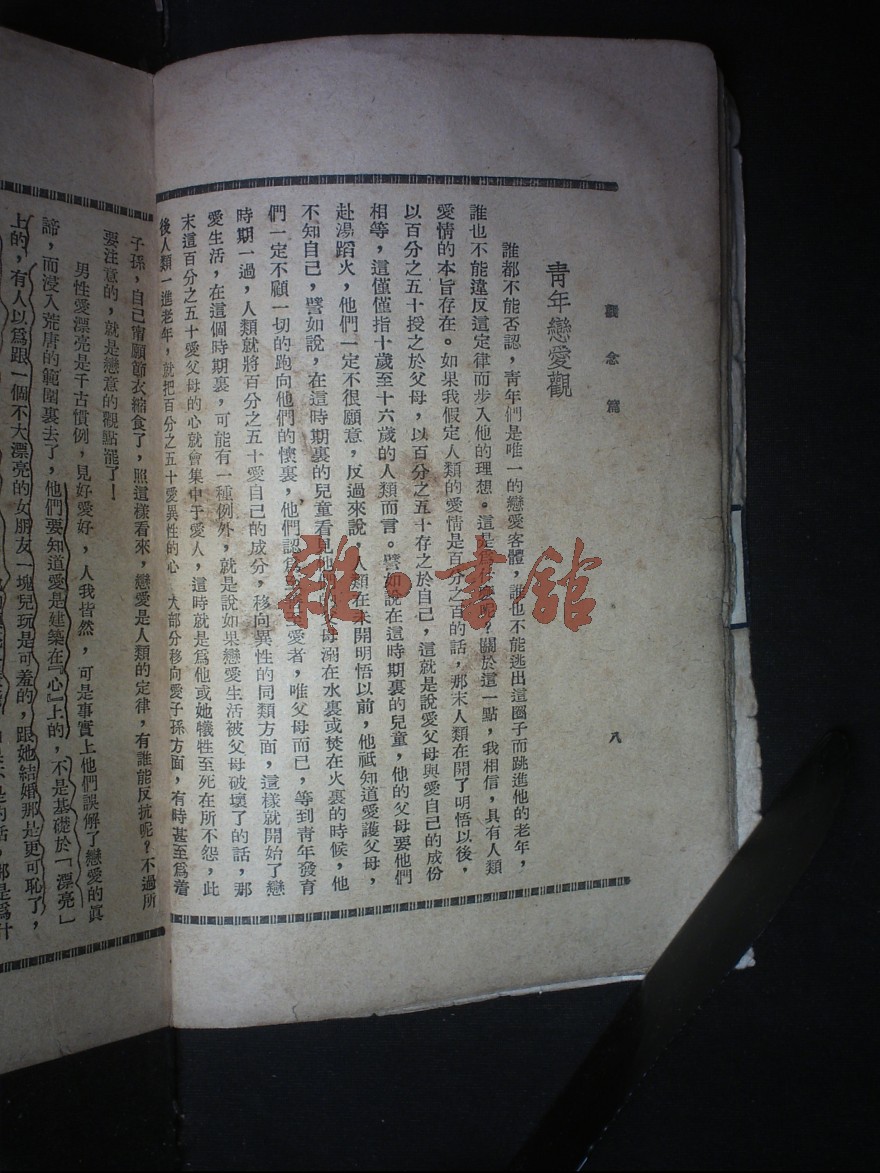 觀念篇
八
青年戀愛觀
誰都不能否認，青年們是唯一的戀愛客體，誰也不能逃出這圈子而跳進他的老年，
誰也不能違反這定律而步入他的理想。這是爲什麼呢？關於這一點，我相信，具有人類
愛情的本旨存在。如果我假定人類的愛情是百分之百的話，那末人類在開了明悟以後，
以百分之五十授之於父母，以百分之五十存之於自己，這就是說愛父母與愛自己的成份
相等，這僅僅指十歲至十六歲的人類而言。譬如說在這時期裏的兒童，他的父母要他們
赴湯蹈火，他們一定不很願意，反過來說，人類在未開明悟以前，他祇知道愛護父母，
不知自己，譬如說，在這時期裏的兒童看見他們父母溺在水裏或焚在火裏的時候，他
們一定不顧一切的跑向他們的懷裏，他們認爲愛者，唯父母而已，等到青年發育
時期一過，人類就將百分之五十愛自己的成分，移向異性的同類方面，這樣就開始了戀
愛生活，在這個時期裏，可能有一種例外，就是說如果戀愛生活被父母破壞了的話，那
末這百分之五十愛父母的心就會集中于愛人，這時就是爲他或她犧牲至死在所不怨，此
後人類一進老年，就把百分之五十愛異性的心 大部分移向愛子孫方面，有時甚至爲着
子孫，自己甯願節衣縮食了，照這樣看來，戀愛是人類的定律，有誰能反抗呢？不過所
要注意的，就是戀意的觀點罷了！
男性愛漂亮是千古慣例，見好愛好，人我皆然，可是事實上他們誤解了戀愛的眞
諦，而浸入荒唐的範圍裏去了，他們要知道愛是建築在『心』上的，不是基礎於「漂亮」
上的，有人以爲跟一個不大漂亮的女朋友一塊兒玩是可羞的，跟她結婚那是更可恥了，
雜·書館